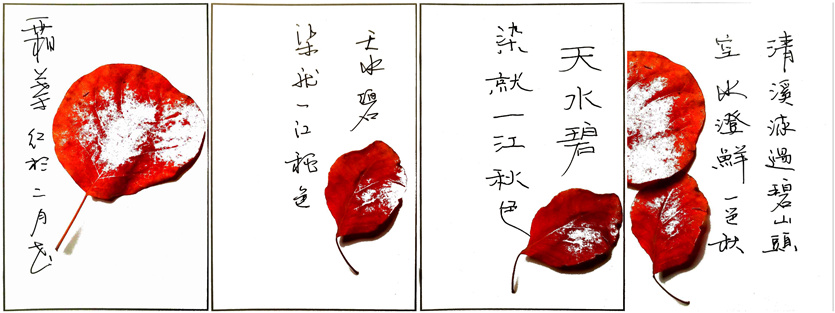 清溪流過碧山頭
空水澄鮮一色秋
天水碧
染就一江秋色
天水碧
染就一江秋色
霜葉红於二月花